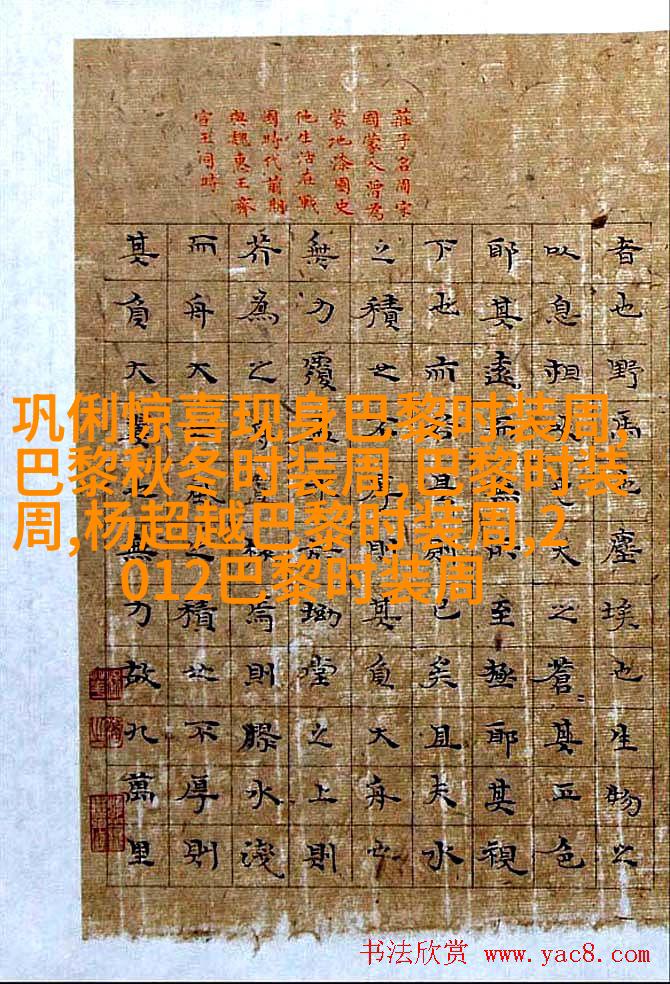 莊子名周宋
國蒙人曾為
蒙地漆園史
他生活在戰
國時代前期
與魏惠王齊
宣王同時
者也野馬也塵埃也生物之
以息相吹也天之蒼〻其正色
耶其遠而無所至極耶其視
下也而若是則已矣且夫水
之積也不厚則其負大舟也
無力覆坳堂之上則
芥為之焉則膠水淺
而舟大風之積也不厚則
其負大翼也無力故九萬里
巩俐惊喜现身巴黎时装周,
巴黎秋冬时装周,巴黎时装
周,杨超越巴黎时装周,2
012巴黎时装周
书法欣赏 www.yac8.com